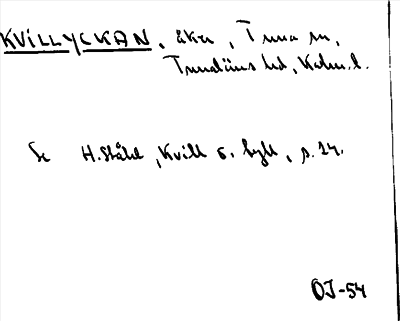 KVILLYCKAN, åker, Tuna sn,
Tunaläns hd, Kalm. l.
Se H. Ståhl, Kvill o. byll, s. 14.
OJ-54